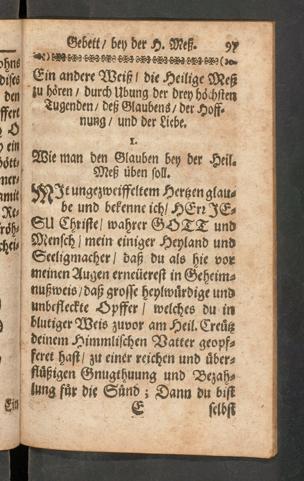 Gebett / bey der H. Meß. 97
Ein andere Weiß / die Heilige Meß
zu hören / durch Ubung der drey höchsten
Tugenden / deß Glaubens / der Hoff-
nung / und der Liebe.
1.
Wie man den Glauben bey der Heil.
Meß üben soll.
MIt ungezweiffeltem Hertzen glau-
be und bekenne ich / HErr JE-
SU Christe / wahrer GOTT und
Mensch / mein einiger Heyland und
Seeligmacher / daß du als hie vor
meinen Augen erneüerest in Geheim-
nußweis / daß grosse heylwürdige und
unbefleckte Opffer / welches du in
blutiger Weis zuvor am Heil. Creütz
deinem Himmlischen Vatter geopf-
feret hast / zu einer reichen und über-
flüßigen Gnugthuung und Bezah-
lung für die Sünd ; Dann du bist
E selbst
Ein